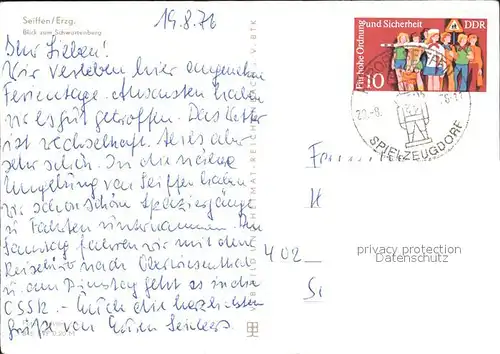 Seiffen/Erzg.
Blick zum Schwartenberg
19.8.76
Ihr Lieben!
Wir verleben hier angenehme
Ferientage. Ansonsten haben
wir es gut getroffen. Das Wetter
ist wechselhaft. Aber
sehr schön. In die nähere
Umgebung von Seiffen haben
wir schon schöne Spaziergänge
u. Fahrten unternommen. Den
Samstag fahren wir mit dem
Reisebüro nach Oberwiesenthal
u. am Dienstag geht es in die
CSSR. - Euch die herzlichsten
Grüße von Euren
Für hohe Ordnung und Sicherheit
DDR
10
SPIELZEUGDORF
402
privacy protection
Datenschutz